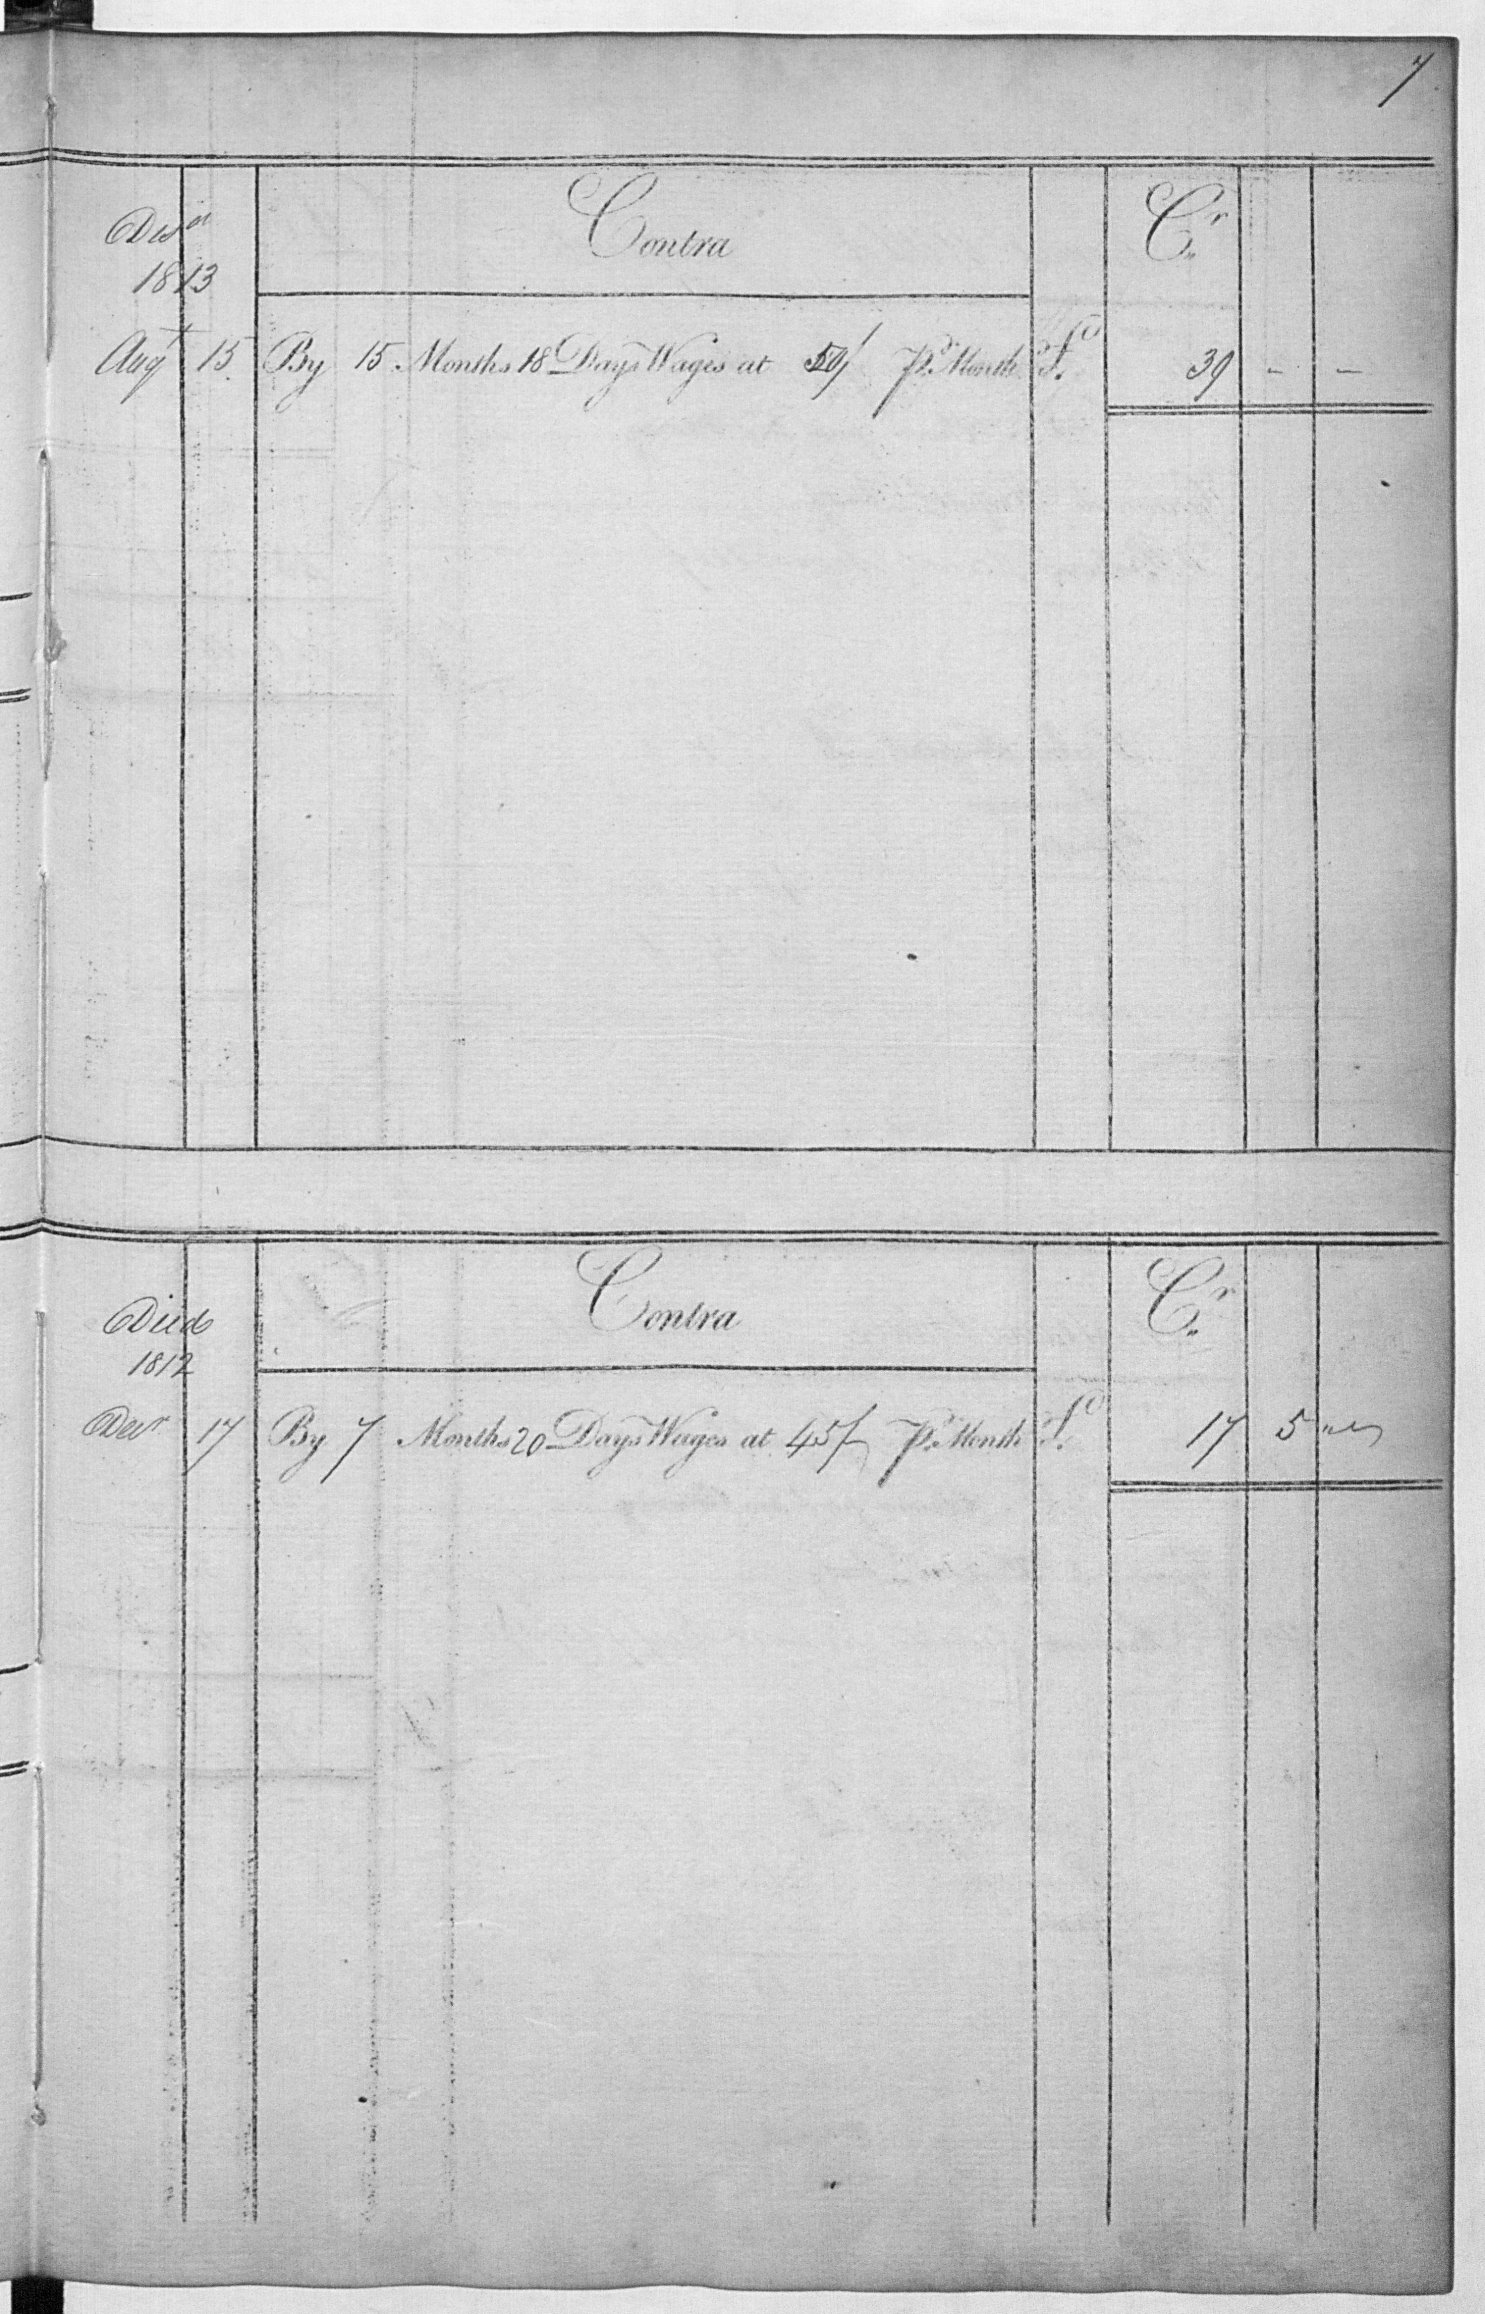 7
Contra Cr
Desd
1813
Augt 15 By 15 Months 18 Days Wages at 50/ Pr. Month £ 39 - -
Contra Cr
Died
1812
Decr 17 By 7 Months 20 Days Wages at 45/ Pr. Month £ 17 5 "